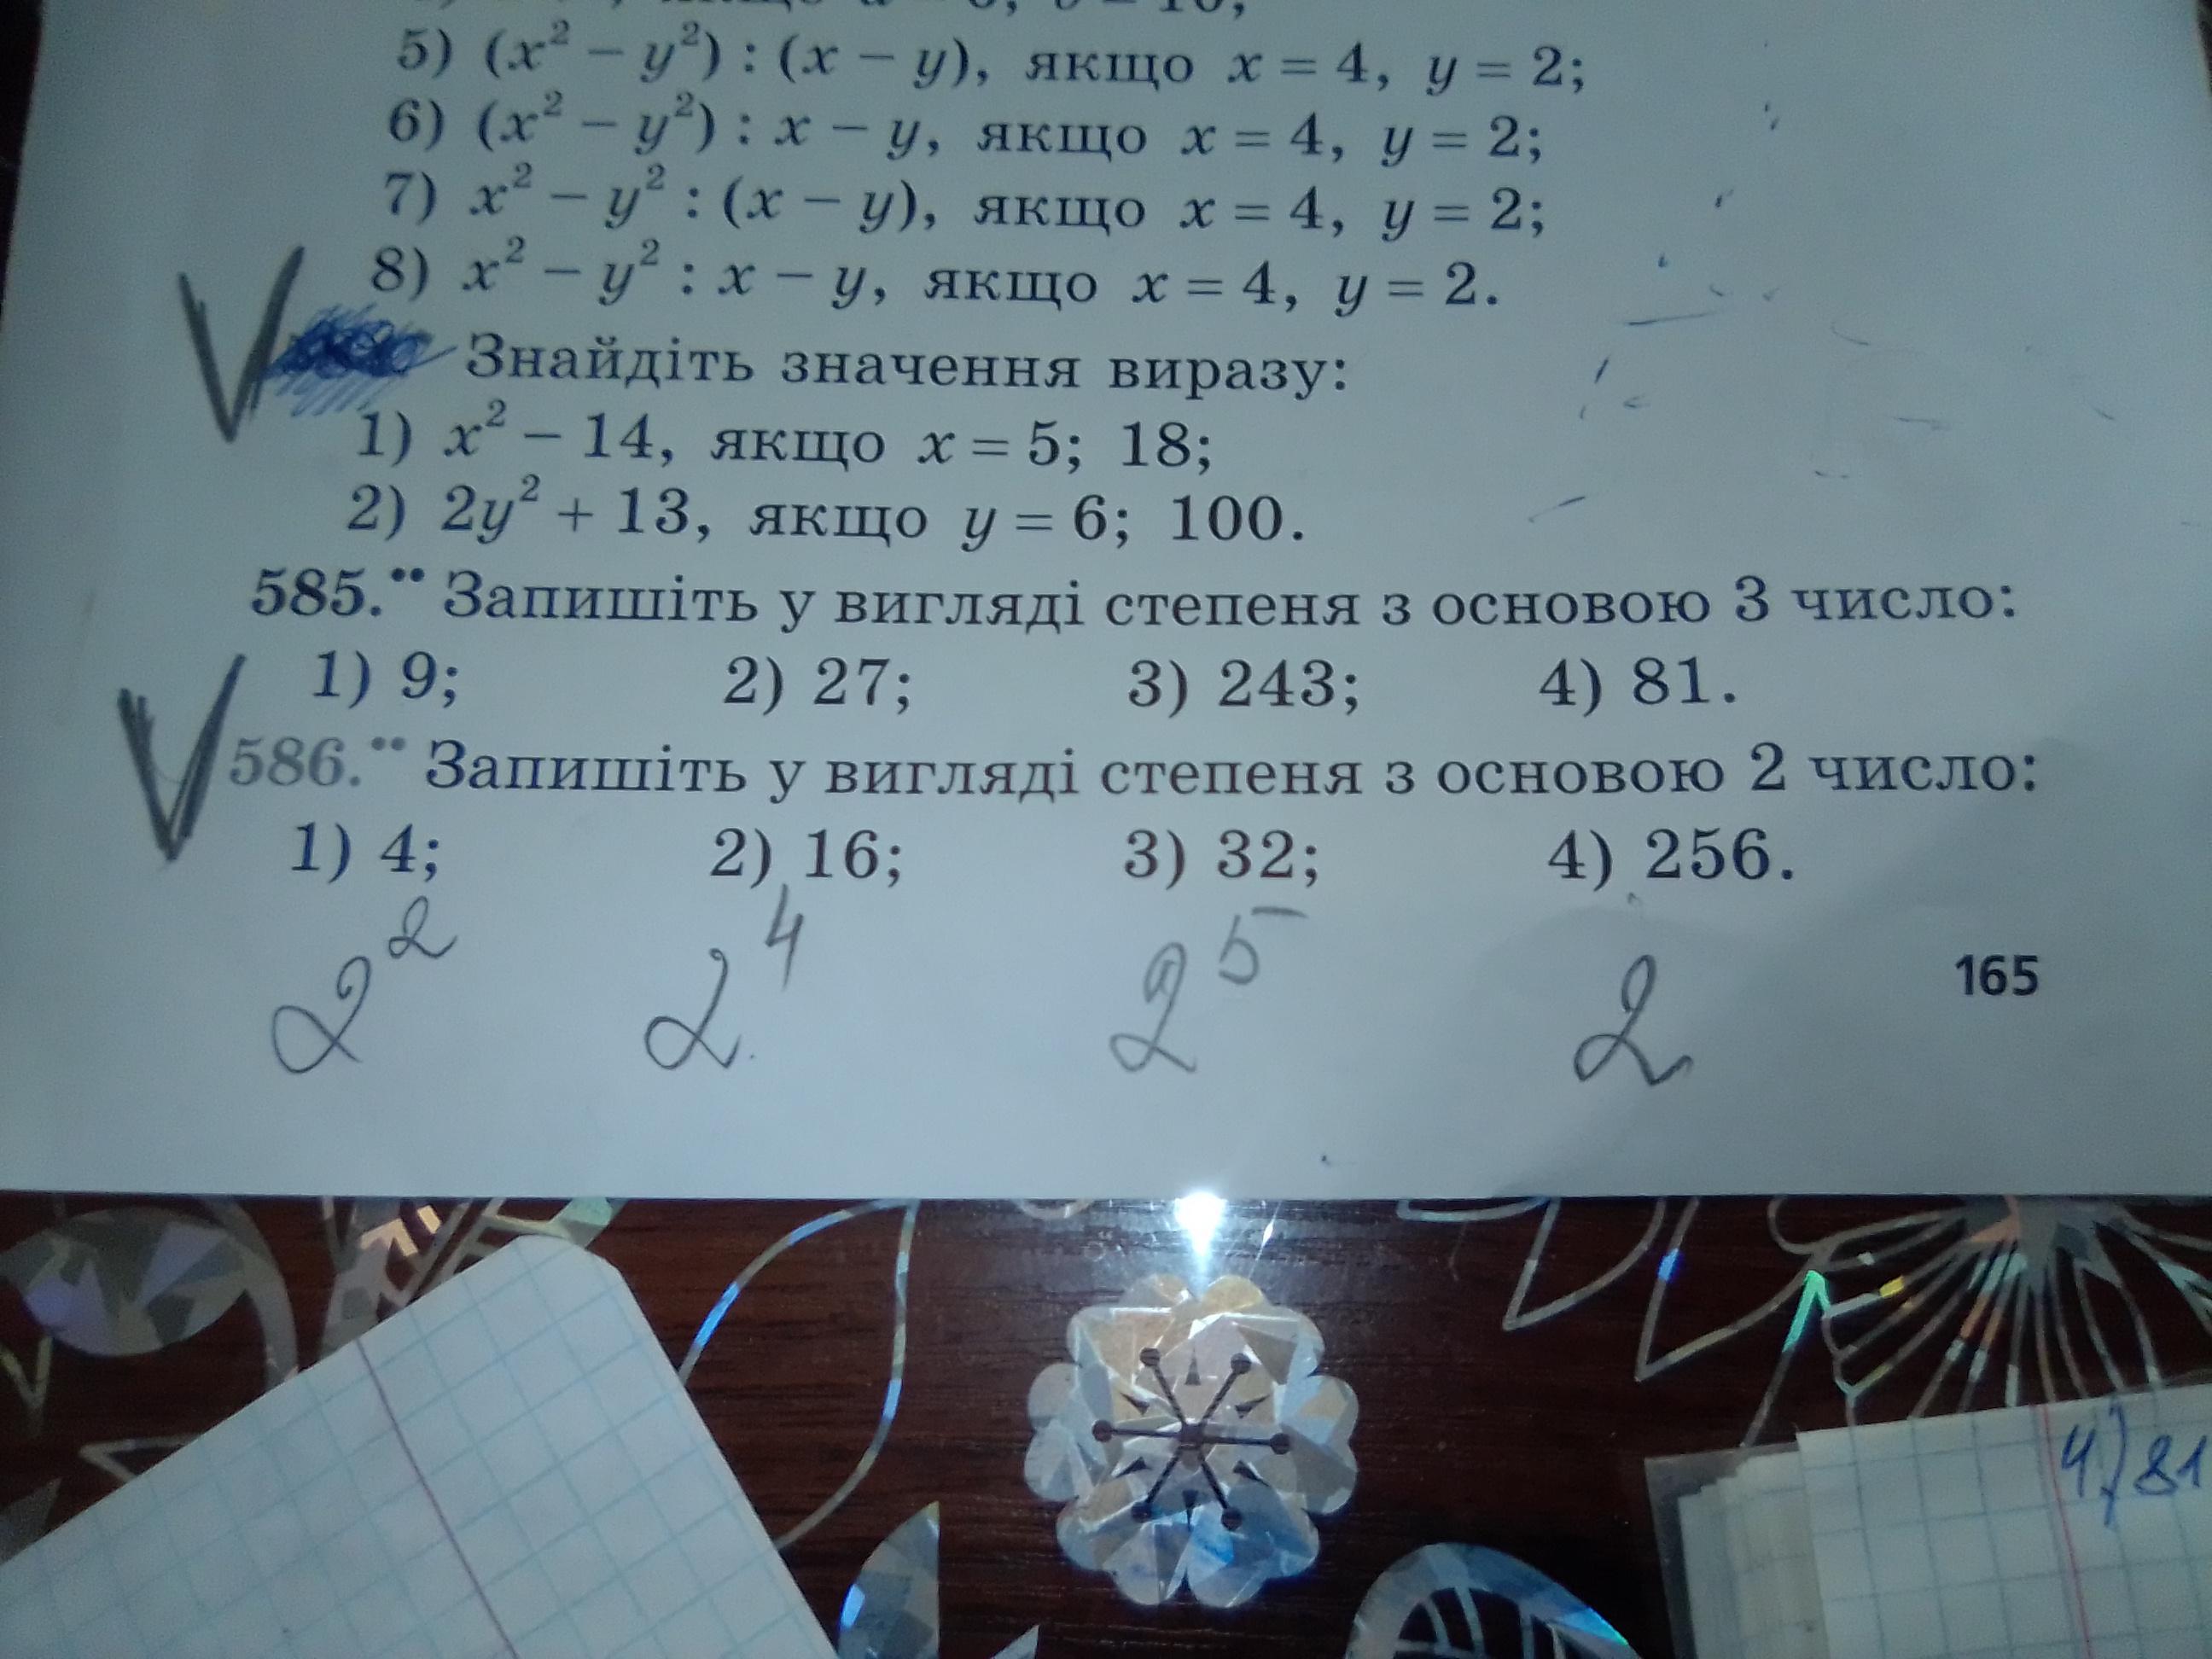 5) (x² − y²) : (x − y), якщо x = 4, y = 2;
6) (x² − y²) : x − y, якщо x = 4, y = 2;
7) x² − y² : (x − y), якщо x = 4, y = 2;
8) x² − y² : x − y, якщо x = 4, y = 2.
Знайдіть значення виразу:
1) x² − 14, якщо x = 5; 18;
2) 2y² + 13, якщо y = 6; 100.
585.•• Запишіть у вигляді степеня з основою 3 число:
1) 9; 2) 27; 3) 243; 4) 81.
586.•• Запишіть у вигляді степеня з основою 2 число:
1) 4; 2) 16; 3) 32; 4) 256.
2² 2⁴ 2⁵ 2
165
4) 81